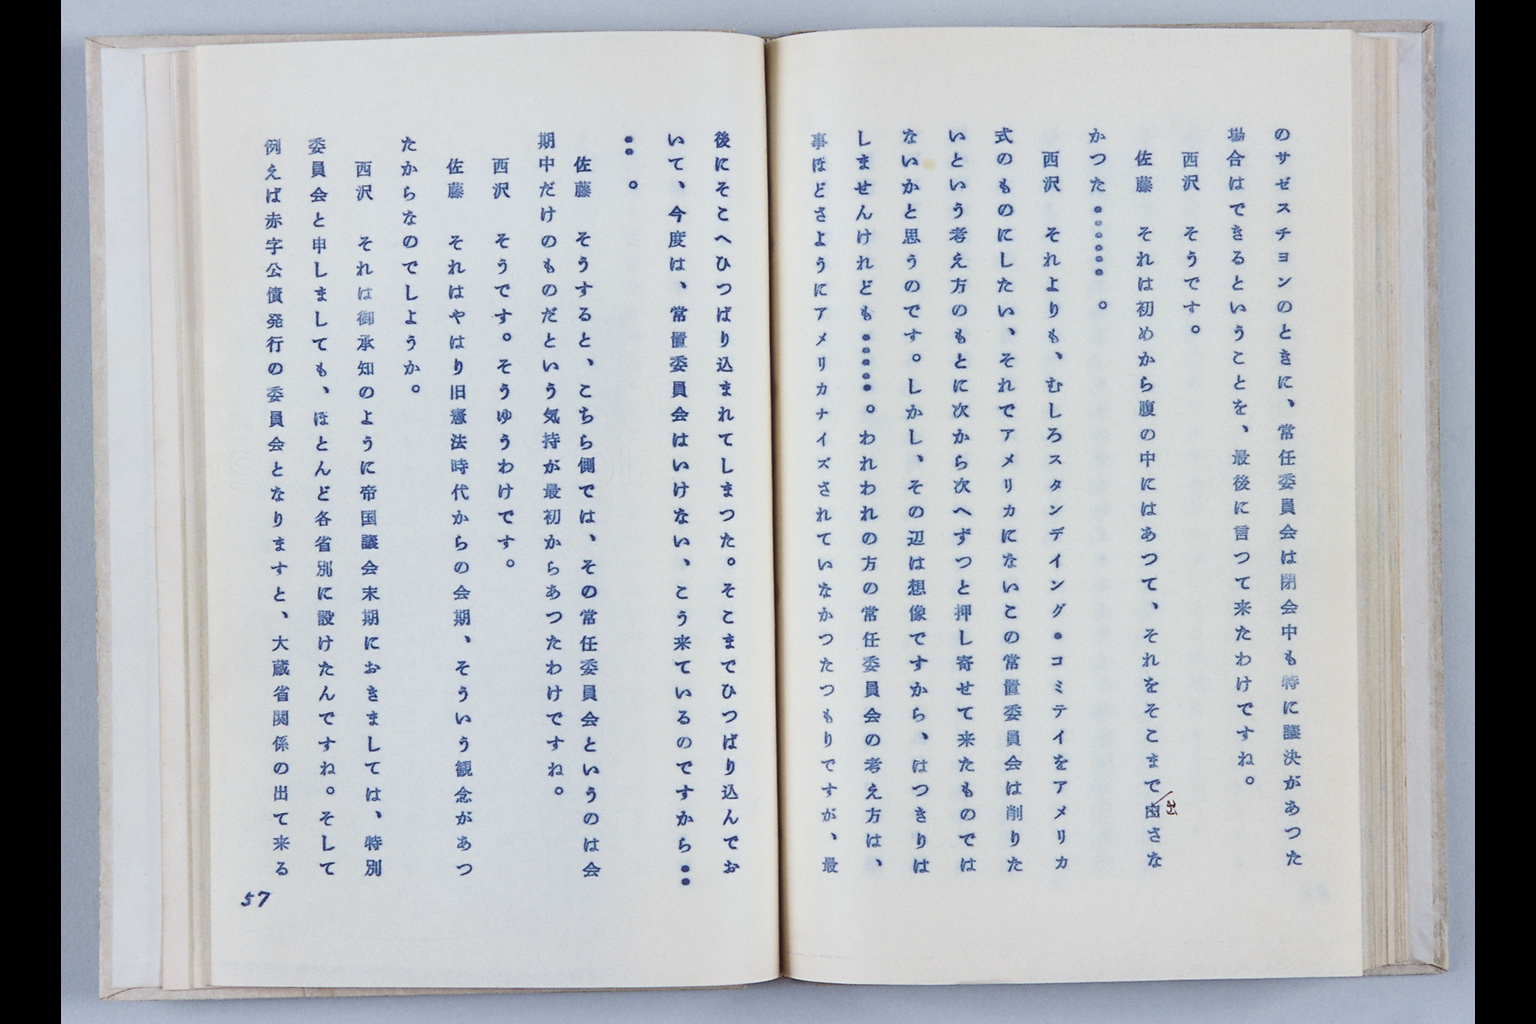 のサゼスチヨンのときに、常任委員会は閉会中も特に議決があつた
場合はできるということを、最後に言つて来たわけですね。
西沢　そうです。
佐藤　それは初めから腹の中にはあつて、それをそこまで出さな
かつた●●●●●●。
西沢　それよりも、むしろスタンデイング・コミテイをアメリカ
式のものにしたい、それでアメリカにないこの常置委員会は削りた
いという考え方のもとに次から次へずつと押し寄せて来たものでは
ないかと思うのです。しかし、その辺は想像ですから、はつきりは
しませんけれども●●●●●。われわれの方の常任委員会の考え方は、
事ほどさようにアメリカナイズされていなかつたつもりですが、最
後にそこへひつぱり込まれてしまつた。そこまでひつぱり込んでお
いて、今度は、常置委員会はいけない、こう来ているのですから●●
●●。
佐藤　そうすると、こちら側では、その常任委員会というのは会
期中だけのものだという気持が最初からあつたわけですね。
西沢　そうです。そうゆうわけです。
佐藤　それはやはり旧憲法時代からの会期、そういう観念があつ
たからなのでしようか。
西沢　それは御承知のように帝国議会末期におきましては、特別
委員会と申しましても、ほとんど各省別に設けたんですね。そして
例えば赤字公債発行の委員会となりますと、大蔵省関係の出て来る
57